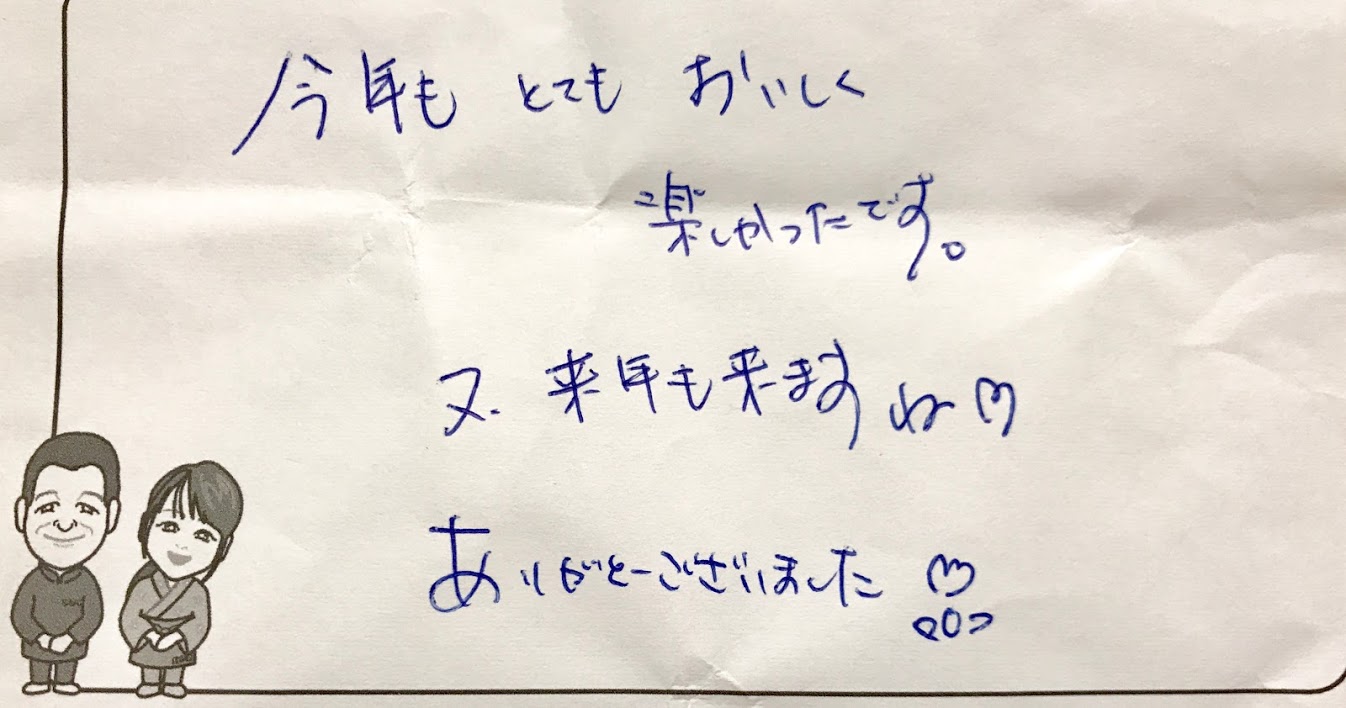 今年も とても おいしく
楽しかったです。
又、来年も来ますね♡
ありがとーございました♡